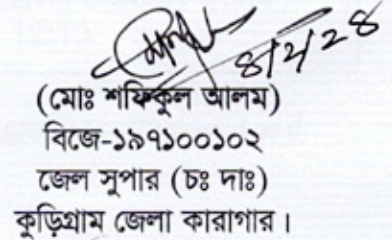 ৪/২/২৪
(মোঃ শফিকুল আলম)
বিজে-১৯৭১০০১০২
জেল সুপার (চঃ দাঃ)
কুড়িগ্রাম জেলা কারাগার।